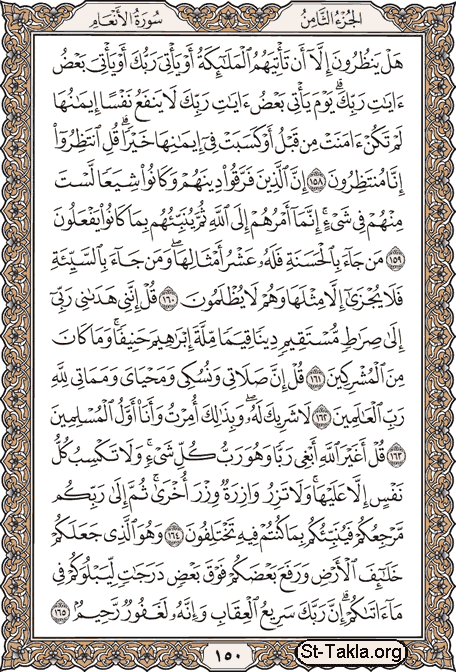 الجزء الثامن
سورة الأنعام
هَلْ يَنظُرُونَ إِلَّآ أَن تَأْتِيَهُمُ ٱلْمَلَٰٓئِكَةُ أَوْ يَأْتِىَ رَبُّكَ أَوْ يَأْتِىَ بَعْضُ
ءَايَٰتِ رَبِّكَ ۗ يَوْمَ يَأْتِى بَعْضُ ءَايَٰتِ رَبِّكَ لَا يَنفَعُ نَفْسًا إِيمَٰنُهَا
لَمْ تَكُنْ ءَامَنَتْ مِن قَبْلُ أَوْ كَسَبَتْ فِىٓ إِيمَٰنِهَا خَيْرًا ۗ قُلِ ٱنتَظِرُوٓا۟
إِنَّا مُنتَظِرُونَ ١٥٨ إِنَّ ٱلَّذِينَ فَرَّقُوا۟ دِينَهُمْ وَكَانُوا۟ شِيَعًا لَّسْتَ
مِنْهُمْ فِى شَىْءٍ ۚ إِنَّمَآ أَمْرُهُمْ إِلَى ٱللَّهِ ثُمَّ يُنَبِّئُهُم بِمَا كَانُوا۟ يَفْعَلُونَ
١٥٩ مَن جَآءَ بِٱلْحَسَنَةِ فَلَهُۥ عَشْرُ أَمْثَالِهَا ۖ وَمَن جَآءَ بِٱلسَّيِّئَةِ
فَلَا يُجْزَىٰٓ إِلَّا مِثْلَهَا وَهُمْ لَا يُظْلَمُونَ ١٦٠ قُلْ إِنَّنِى هَدَىٰنِى رَبِّىٓ
إِلَىٰ صِرَٰطٍ مُّسْتَقِيمٍ دِينًا قِيَمًا مِّلَّةَ إِبْرَٰهِيمَ حَنِيفًا ۚ وَمَا كَانَ
مِنَ ٱلْمُشْرِكِينَ ١٦١ قُلْ إِنَّ صَلَاتِى وَنُسُكِى وَمَحْيَاىَ وَمَمَاتِى لِلَّهِ
رَبِّ ٱلْعَٰلَمِينَ ١٦٢ لَا شَرِيكَ لَهُۥ ۖ وَبِذَٰلِكَ أُمِرْتُ وَأَنَا۠ أَوَّلُ ٱلْمُسْلِمِينَ
١٦٣ قُلْ أَغَيْرَ ٱللَّهِ أَبْغِى رَبًّا وَهُوَ رَبُّ كُلِّ شَىْءٍ ۚ وَلَا تَكْسِبُ كُلُّ
نَفْسٍ إِلَّا عَلَيْهَا ۚ وَلَا تَزِرُ وَازِرَةٌ وِزْرَ أُخْرَىٰ ۚ ثُمَّ إِلَىٰ رَبِّكُم
مَّرْجِعُكُمْ فَيُنَبِّئُكُم بِمَا كُنتُمْ فِيهِ تَخْتَلِفُونَ ١٦٤ وَهُوَ ٱلَّذِى جَعَلَكُمْ
خَلَٰٓئِفَ ٱلْأَرْضِ وَرَفَعَ بَعْضَكُمْ فَوْقَ بَعْضٍ دَرَجَٰتٍ لِّيَبْلُوَكُمْ فِى
مَآ ءَاتَىٰكُمْ ۗ إِنَّ رَبَّكَ سَرِيعُ ٱلْعِقَابِ وَإِنَّهُۥ لَغَفُورٌ رَّحِيمٌۢ ١٦٥
١٥٠
St-Takla.org